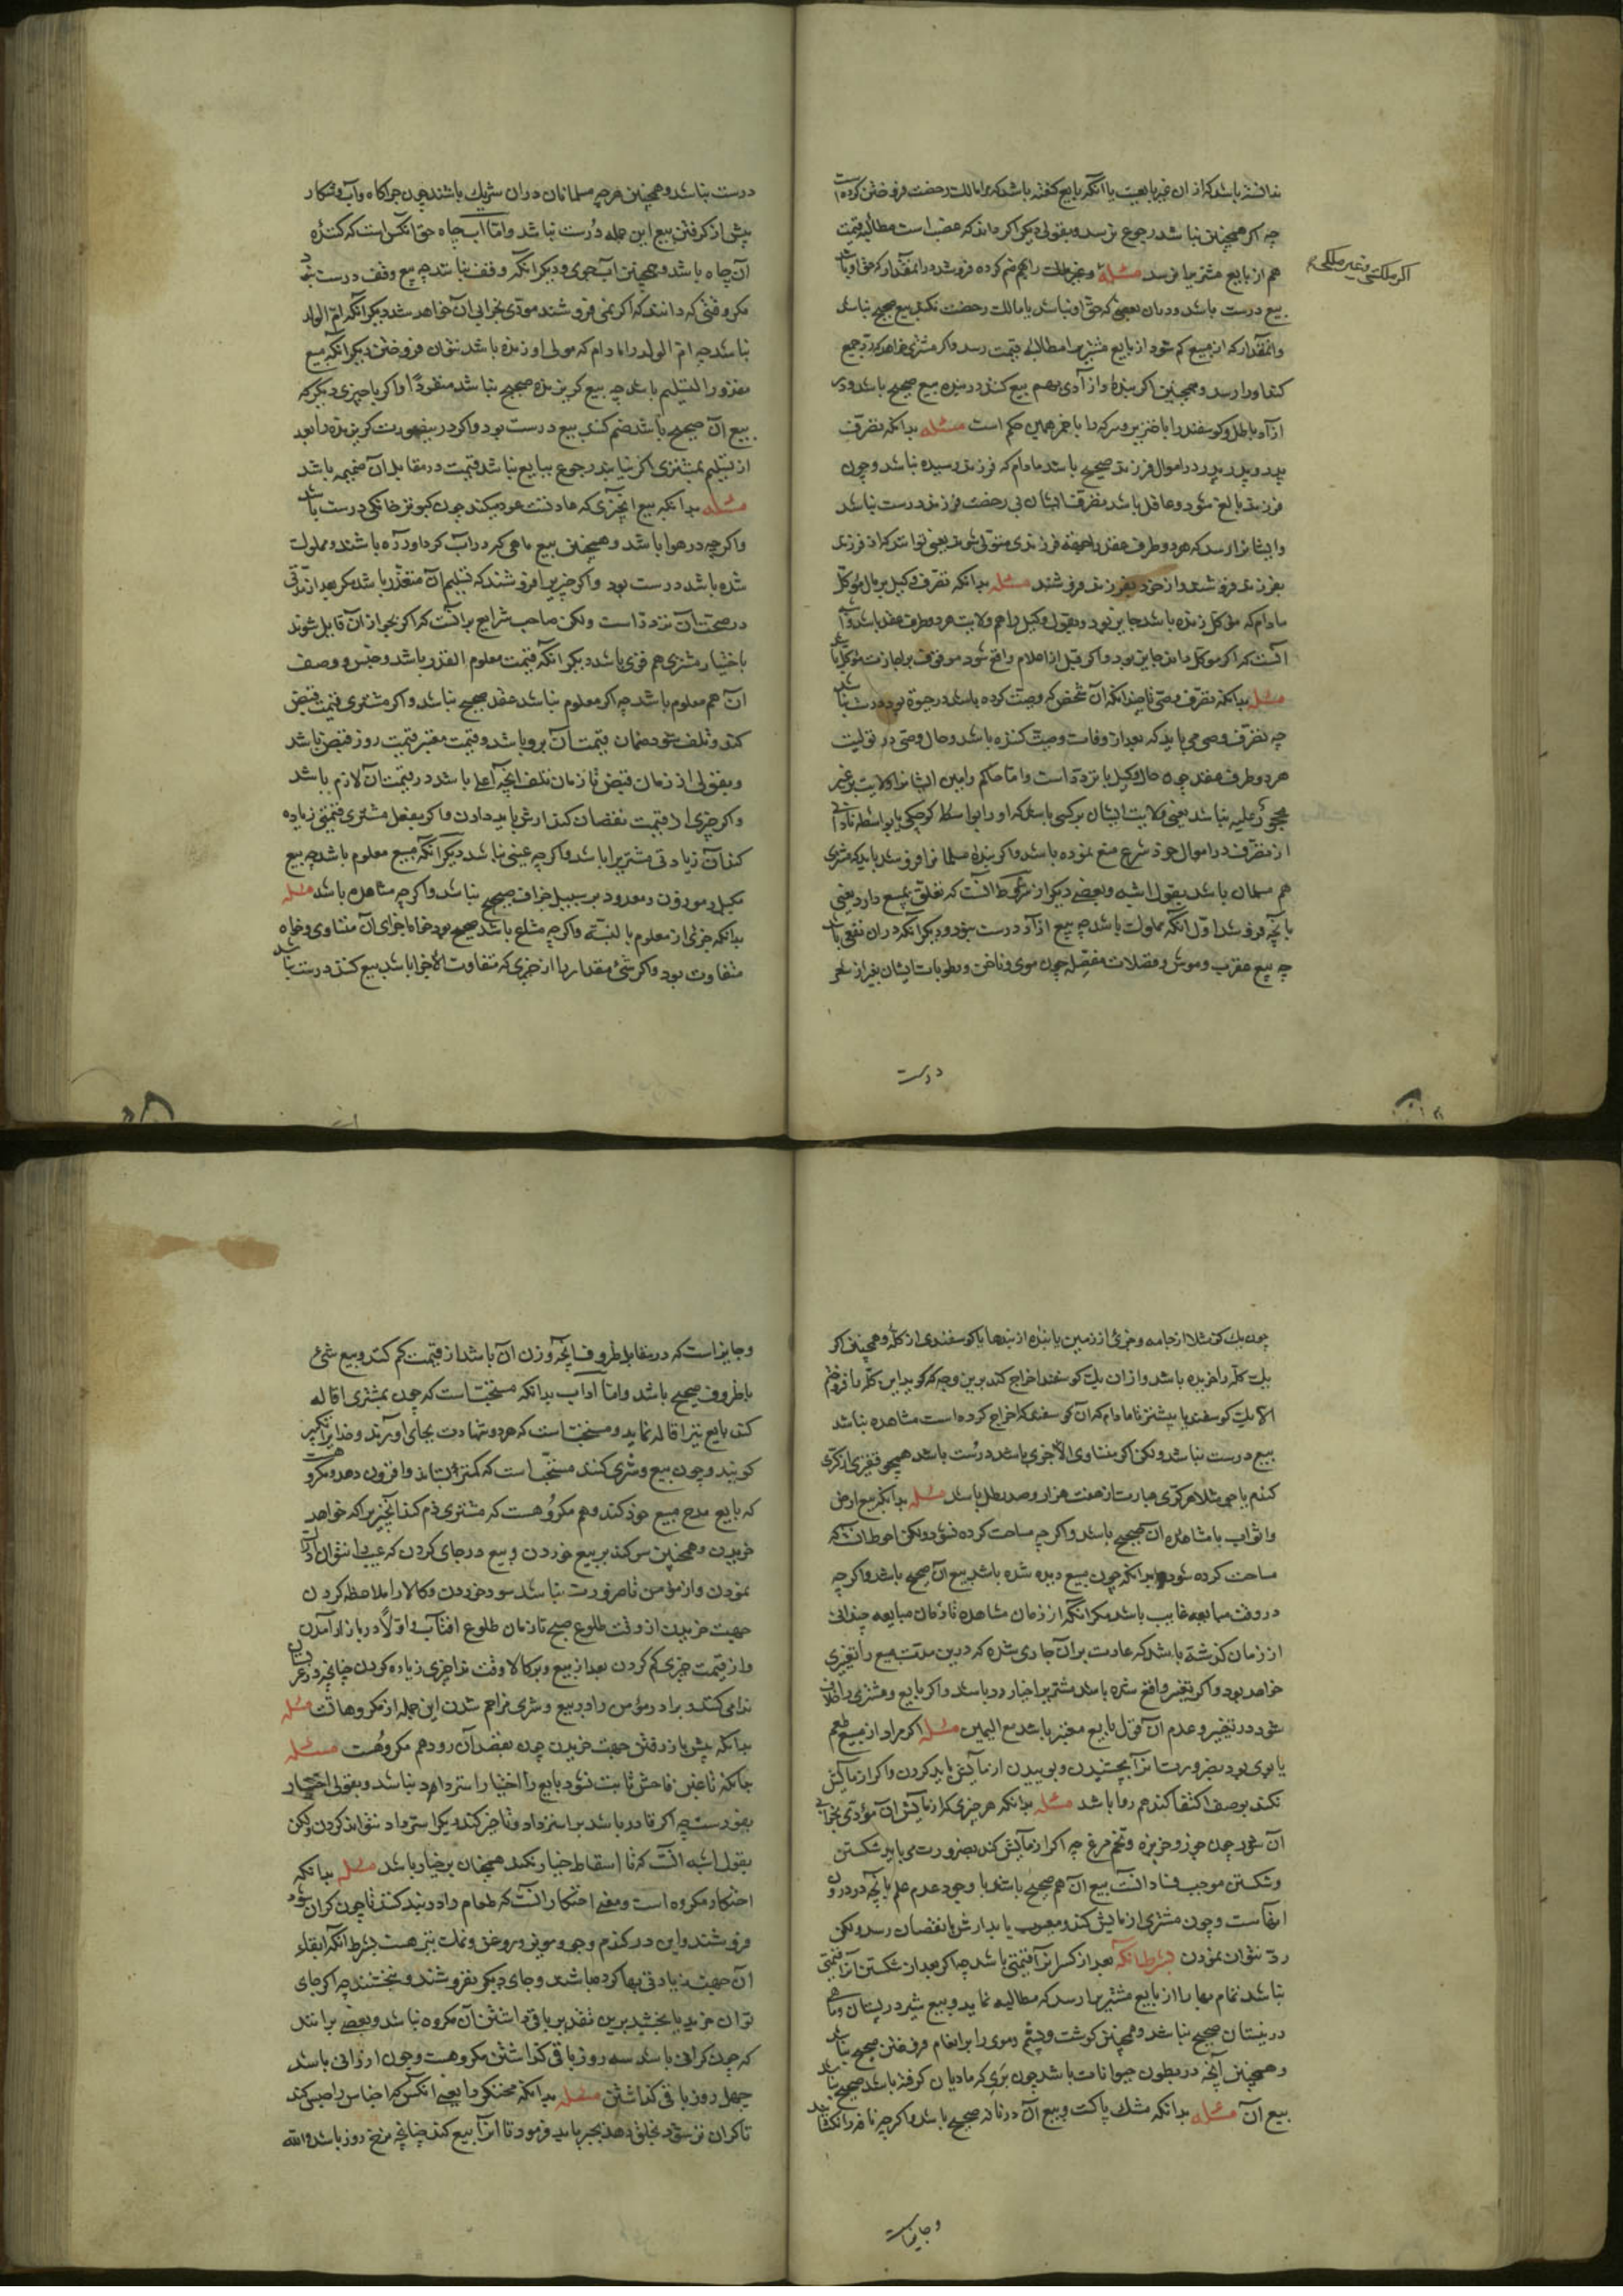 ندانسته باشد که از ان غیر بایعست یا آنکه بایع کفته باشد که مرا مالک رخصت فروختن کرده است
چه اکر همچنین نباشد رجوع نرسد وبقولی دیکر اکر داند که غصب است مطالبه قیمت
هم از بایع مشتریرا نرسد مسئله وغیر ملک را بهم ضم کرده فروشد در انمقدار که حق او باشد
اکر ملکی وغیر ملکی
بیع درست باشد ودر ان بعضی که حق او نباشد یا مالک رخصت نکند بیع صحیح نباشد
وانمقدار که از مبیع کم شود از بایع مشتریرا مطالبه قیمت رسد واکر مشتری خواهد که رد جمیع
کند اورا رسد وهمچنین اکر بنده واز آدی بهم بیع کند در بنده بیع صحیح باشد ودر
ازآد باطل وکوسفند را با خنزیر وسرکه را با خمر همین حکم است مسئله بدانکه تصرف
پدر وپدر پدر در اموال فرزند صحیح باشد مادام که فرزند رسیده نباشد وچون
فرزند بالغ شود وعاقل باشد تصرف ایشان بی رخصت فرزند درست نباشد
وایشانرا رسد که هر دو طرف عقد را بجهة فرزندی متولی شوند یعنی توانند که از فرزند
بفرزند فروشند واز خود بفرزند فروشند مسئله بدانکه تصرف وکیل بر مال موکل
مادام که موکل زنده باشد جایز بود وبقول وکیل را هم ولایت هر دو طرف عقد باشد
آنست که اکر موکل داند جایز بود واکر قبل از اعلام واقع شود موقوف بر اجازت موکل باشد
مسئله بدانکه تصرف وصی نافذ انکه آن شخص که وصیت کرده باشد در حیوة بود درست نباشد
چه تصرف وصی می باید که بعد از وفات وصیت کننده باشد وحال وصی در تولیت
هر دو طرف عقد چون حال وکیل با تردد است واما حاکم وامین ایشانرا ولایت بر غیر
محجور علیه نباشد یعنی ولایت ایشان بر کسی باشد که او را بواسطه کوچکی یا بواسطه نادانی
از تصرف در اموال خود شرع منع نموده باشد واکر بنده مسلمانرا فروشد باید که مشتری
هم مسلمان باشد بقول اشبه وبعضی دیکر از شروط آنست که تعلق بمبیع دارد یعنی
بآنچه فروشد اول آنکه مملوک باشد چه بیع ازآد درست نبود ودیکر آنکه در ان نفعی باشد
چه بیع عقرب وموش وفضلات منفصله چون موی وناخن ورطوبات ایشان بغیر از شعر
درست
درست نباشد وهمچنین هر چه مسلمانان در ان شریک باشند چون چراکاه وآب وشکار
پیش از کرفتن بیع این جمله درست نباشد واما آب چاه حق انکس است که کننده
آن چاه باشد وهمچنین آب جوی ودیکر انکه وقف نباشد چه بیع وقف درست نبود
مکر وقتی که دانند که اکر نمی فروشند مودی بخرابی آن خواهد شد دیکر انکه ام الولد
نباشد چه ام الولد را مادام که مولی او زنده باشد نتوان فروختن دیکر انکه مبیع
مقدور التسلیم باشد چه بیع کریزنده صحیح نباشد منفردا واکر با چیزی دیکر که
بیع آن صحیح باشد ضم کنند بیع درست بود واکر در ینصورت کریزنده را بعد
از تسلیم بمشتری اکر نیابند رجوع ببایع نباشد قیمت در مقابل آن ضمیمه باشد
مسئله بدانکه بیع انچیزی که عادتست عود میکند چون کبوتر خانکی درست باشد
واکر چه در هوا باشد وهمچنین بیع ماهی که در آب کرد اورده باشند ومملوک
شده باشد درست بود واکر چیزیرا فروشند که تسلیم آن متعذر باشد مکر بعد از مدتی
در صحت آن تردد است ولکن صاحب شرایع بر آنست که اکر بجواز آن قایل شوند
باختیار مشتری هم قوی باشد دیکر انکه قیمت معلوم القدر باشد وجنس ووصف
آن هم معلوم باشد چه اکر معلوم نباشد عقد صحیح نباشد واکر مشتری قیمت قبض
کند وتلف شود ضمان قیمت آن برو باشد وقیمت معتبر قیمت روز قبض باشد
وبقولی از زمان قبض تا زمان تلف آنچه اعلا باشد در قیمت آن لازم باشد
واکر چیزی از قیمت نقصان کند ارش باید دادن واکر بفعل مشتری قیمتی زیاده
کند آن زیادتی مشتریرا باشد واکر چه عینی نباشد دیکر انکه مبیع معلوم باشد چه بیع
مکیل وموزون ومعدود بر سبیل جزاف صحیح نباشد واکر چه مشاهد باشد مسئله
بدانکه جزئی از معلوم بالنسبة واکر چه مشاع باشد صحیح بود خواه اجزای آن متساوی وخواه
متفاوت بود واکر شئ مقدار را از چیزی که متفاوت الاجزا باشد بیع کند درست نباشد
چون یک کز مثلا از جامه وجزئ از زمین یا بنده از بندها یا کوسفندی از کله وهمچنین اکر
یک کله را خریده باشد واز ان یک کوسفند اخراج کند برین وجه که کوید این کله را فروختم
الا یک کوسفند یا بیشتر تا مادام که آن کوسفند که اخراج کرده است مشاهده نباشد
بیع درست نباشد ولکن اکر متساوی الاجزی باشد درست باشد همچو قفیزی از کری
کندم یا جو مثلا هر کری عبارت از هفت هزار وصد رطل باشد مسئله بدانکه بیع ارض
واثواب با مشاهده آن صحیح باشد واکر چه مساحت کرده نشود ولکن احوط آنست که
مساحت کرده شود بدانکه چون مبیع دیده شده باشد بیع آن صحیح باشد واکر چه
در وقت مبایعه غایب باشد مکر انکه از زمان مشاهده تا زمان مبایعه چندانی
از زمان کذشته باشد که عادت بر آن جاری شده که درین مدت مبیع را تغیری
خواهد بود واکر تغیر واقع شده باشد مشتریرا خیار رد باشد واکر بایع ومشتری را خلاف
شود در تغیر وعدم آن قول بایع معتبر باشد مع الیمین مسئله اکر مراد از مبیع طعم
یا بوی بود بضرورت آنرا بچشیدن وبوییدن ازمایش باید کردن واکر ازمایش
نکند بوصف اکتفا کند هم روا باشد مسئله بدانکه هر چیزی که ازمایش آن مؤدی بخرابی
آن شود چون جوز وخربزه وتخم مرغ چه اکر ازمایش کند بضرورت می باید شکستن
وشکستن موجب فساد آنست بیع آن هم صحیح باشد با وجود عدم علم بآنچه در درون
اینهاست وچون مشتری ازمایش کند ومعیوب یابد ارش با نقصان رسد ولکن
رد نتوان نمودن بشرط انکه بعد از کسر آنرا قیمتی باشد چه اکر بعد از شکستن آنرا قیمتی
نباشد تمام بها را از بایع مشتریرا رسد که مطالبه نماید وبیع شیر در پستان وماهی
در نیستان صحیح نباشد وهمچنین کوشت وپشم وموی را بر انعام فروختن صحیح نباشد
وهمچنین آنچه در بطون حیوانات باشد چون بری که مادیان کرفته باشد صحیح نباشد
بیع آن مسئله بدانکه مشک پاکست وبیع آن در نافه صحیح باشد واکر چه نافه را نکشایند
وجایزاست
وجایز است که در مقابل ظروف آنچه وزن آن باشد از قیمت کم کنند وبیع شئ
با ظروف صحیح باشد واما اداب بدانکه مستحبست که چون مشتری اقاله
کند بایع نیز اقاله نماید ومستحبست که هر دو شهادت بجای آورند وخدا را تکبیر
کویند وچون بیع وشری کنند مستحب است که کمتر بستاند وافزون دهد ومکروهست
که بایع مدح مبیع خود کند وهم مکروهست که مشتری ذم کند آنچیز را که خواهد
خریدن وهمچنین سوکند بر بیع خوردن وبیع در جای کردن که عیب را نتوان ادراک
نمودن واز مؤمن تا ضرورت نباشد سود خوردن وکالا را ملاحظه کردن
جهت خریدن از وقت طلوع صبح تا زمان طلوع افتاب واولا در بازار آمدن
واز قیمت چیزی کم کردن بعد از بیع وبر کالا وقت ندا چیزی زیاده کردن چنانچه در عرف
ندا می کنند وبرادر مؤمن را در بیع وشری مزاحم شدن این جمله از مکروهاتست مسئله
بدانکه پیش باز رفتن جهت خریدن چون بقصد آن رود هم مکروهست مسئله
چنانکه تا غبن فاحش ثابت نشود بایع را اختیار استرداد نباشد وبقولی اختیار
بفورست چه اکر قادر باشد بر استرداد وتاخیر کند دیکر استرداد نتواند کردن ولکن
بقول اشبه آنست که تا اسقاط خیار نکند همچنان بر خیار باشد مسئله بدانکه
احتکار مکروه است ومعنی احتکار آنست که طعام را در بند کند تا چون کران شود
فروشند واین در کندم وجو ومویز وروغن ونمک نیز هست بشرط آنکه ابقاء
آن جهت زیادتی بها کرده باشد وجای دیکر نفروشند ونبخشند چه اکر جای
توان خرید یا بخشید برین تقدیر باقی داشتن آن مکروه نباشد وبعضی برانند
که چون کرانی باشد سه روز باقی کذاشتن مکروهست وچون ارزانی باشد
چهل روز باقی کذاشتن مسئله بدانکه محتکر را یعنی انکس که اجناس را حبس کند
تا کران نرسود بخلق دهد بجبر باید فرمود تا آنرا بیع کند چنانچه نرخ روز باشد والله